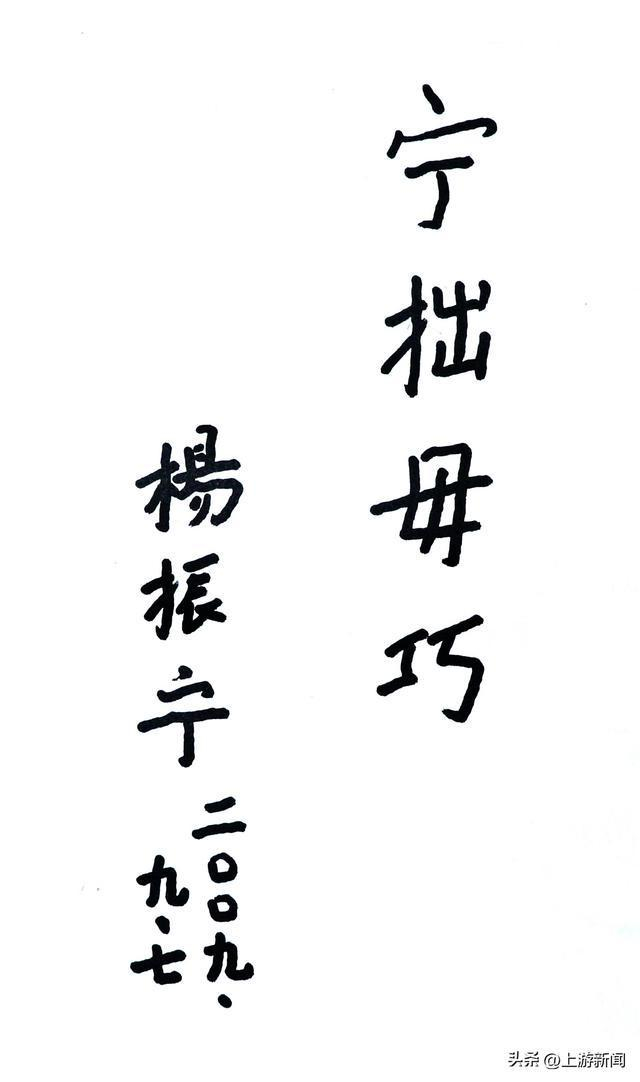 宁拙毋巧
楊振宁
二〇〇九.
九.七
头条 @上游新闻